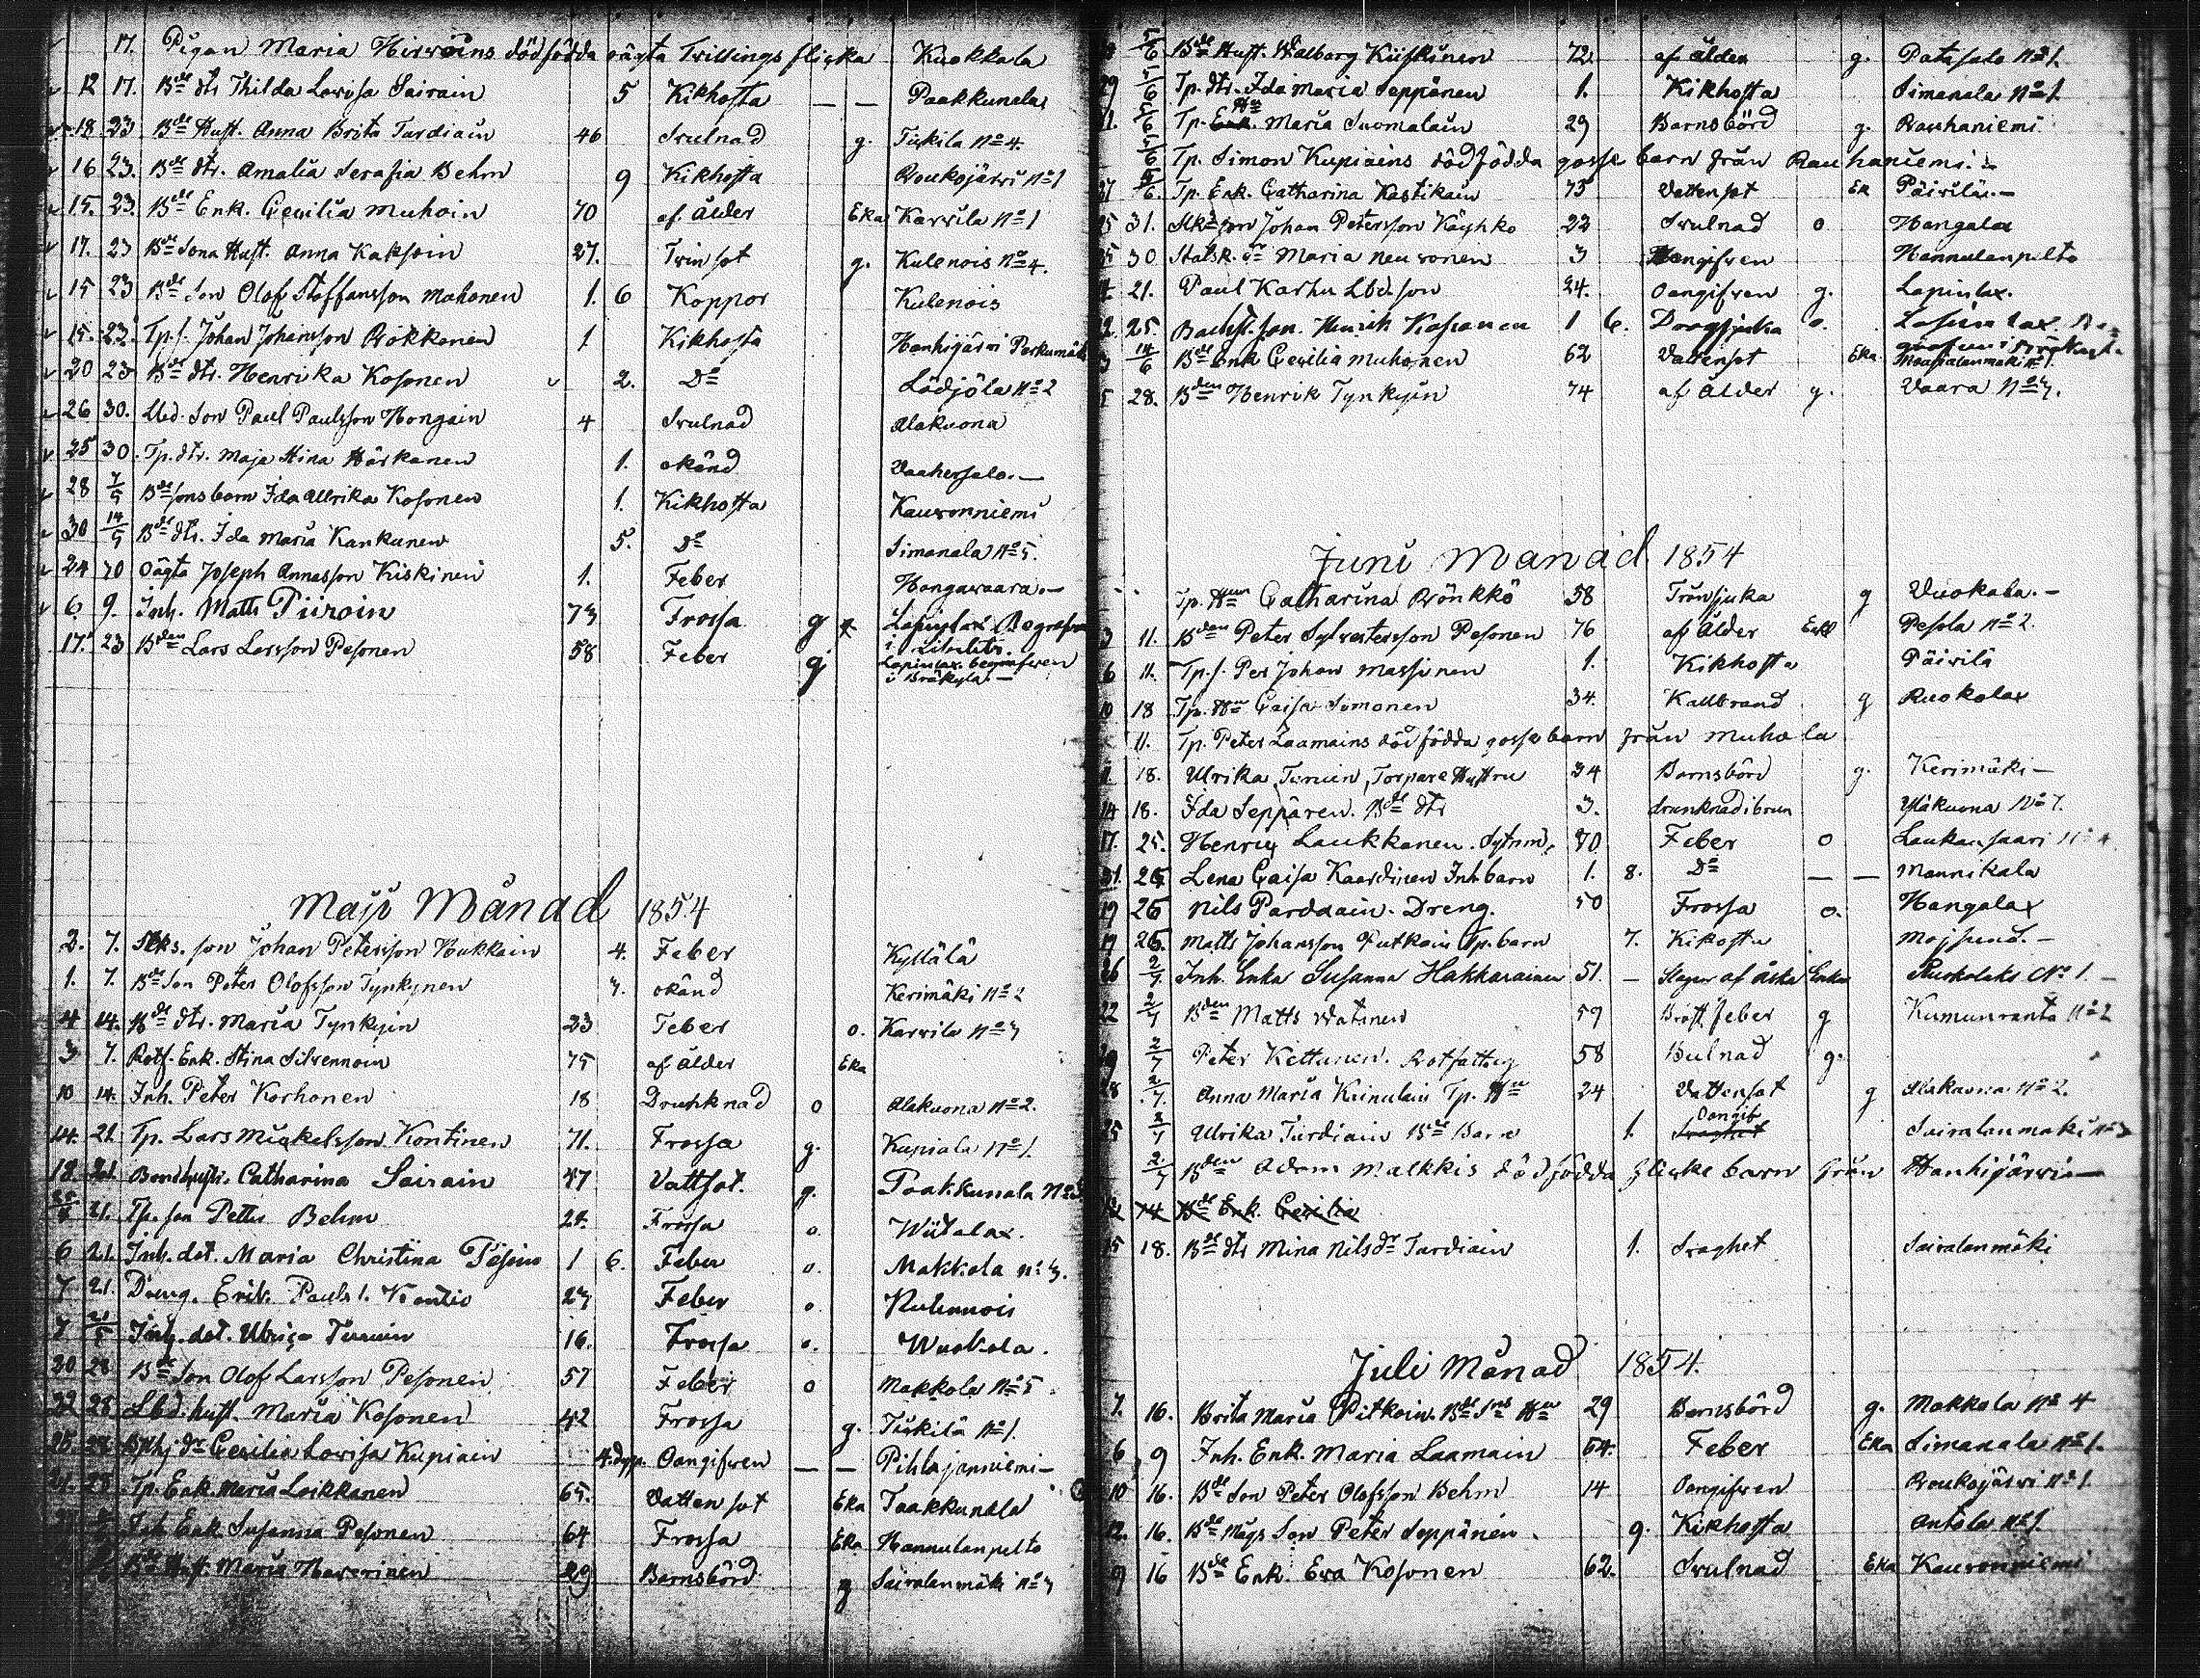 17. Pigan Maria Hirwöins dödfödda oägta Twillings flicka Kuokkala
12 17. Bde dtr Thilda Lovisa Sairain 5 Kikhosta — — Paakkunala
18 23 Bde Hust. Anna Brita Turdiain 46 Svulnad g. Tuskila No 4.
16 23. Bde dtr. Amalia Serafia Behm 9 Kikhosta Roukojärwi No 1
15. 23. Bde Enk. Cecilia Muhoin 70 af ålder Eka Karvila No 1
17. 23 Bde Sona Hust. Anna Kaksoin 27. Twinsot g. Kulenois No 4.
15 23 Bde Son Olof Staffansson Mahonen 1. 6 Koppor Kulenois
15. 23. Tp. s. Johan Johansson Rökkonen 1 Kikhosta Hanhijärvi
20 23 Bde dtr. Henrika Kosonen 2. Do Lödjöla No 2
26 30. Lbd. Son Paul Paulsson Hongain 4 Svulnad Alakuona
25 30. Tp. dtr. Maja Stina Härkänen 1. okänd Vaahersalo. —
28 7/5 Bde sons barn Ida Ullrika Kosonen 1. Kikhosta Kauvonniemi
30 14/5 Bde dtr. Ida Maria Kankunen 5. Do Simanala No 5.
24 Oägta Joseph Annasson Kiskinen 1. Feber Hongawaara. —
6. 9. Inh. Matts Piiroin 73 Frossa g Lapinlax Begrafven
i
17. 23 Bden Lars Larsson Pesonen 58 Feber g Lapinlax begrafven
i Bräkyla. —
Maji Månad 1854
2. 7. son Johan Petersson Hukkain 4. Feber Kyllälä
1. 7. Bde Son Peter Olofsson Tynkynen 7. okänd Kerimäki No 2
4 14. Bde dtr. Maria Tynkyin 23 Feber o. Karvila No 7
3 7. Rotf. Enk. Stina Silvennoin 75 af ålder Eka
10 14. Inh. Peter Korhonen 18 Drunknad o Alakuona No 2.
14. 21. Tp. Lars Mickelsson Kontinen 71. Frossa g. Kupiala No 1.
18. 21. Bondhustr. Catharina Sairain 47 Vattsot. g. Paakkunala No 3.
21. Tp. son Petter Behm 22. Frossa o. Wiitalax.
6 21. Inh. det. Maria Christina 1 6. Feber o. Makkola No 3.
7 21. Dreng. Erik Pauls s. Kontio 27 Feber o. Kulennois
7 21/5 Inh. det. Ulrica Turuin 16. Frossa o. Wuokola.
20 28 Bde Son Olof Larsson Pesonen 57 Feber o Makkola No 5.
22 28. Lbd. hust. Maria Kosonen 42 Frossa g. Tuskilä No 1.
Cecilia Lovisa Kupiain Oangifven — — Pihlajaniemi —
Tp. Enk. Maria Loikkanen 65. Vattensot Eka Taakkunala
Inh Enk Susanna Pesonen 64 Frossa Eka Hannulanpelto
Bde Hust. Maria Haverinen 29 Barnsbörd g Sairalanmäki No 7
5/6 Bde Hust. Walborg Kiiskinen 72. af ålder g. Patasalo No 1.
29 5/6 Tp. dtr. Ida Maria Seppänen 1. Kikhosta Simanala No 1.
5/6 Tp. Hu Maria Suomalain 29 Barnsbörd g. Rauhaniemi
5/6 Tp. Simon Kupiains dödfödda gosse barn från Rauhaniemi. —
Tp. Enk. Catharina Kastikain 75 Vattensot Ek Päivilä. —
25 31. son Johan Petersson Käyhkö 22 Svulnad o Hangalax
25 30 Statsk. dr Maria Neuvonen 3 Oangifven Hannulanpelto
21. Paul Karhu Lbd. son 24. Oangifven g. Lapinlax.
22. 25. Backst. son Hinrik Kosonen 1 6. Dragsjuka o.
3 14/6 Bde Enk Cecilia Muhonen 62 Vattensot Eka
5 28. Bden Henrik Tynkyin 74 af Ålder g. Vaara No 7.
Juni Månad 1854
Tp. Hun Catharina Rönkkö 58 Tränsjuka g Vuokala. —
3 11. Bden Peter Sylvestersson Pesonen 76 af Ålder Enkl Pesola No 2.
6 11. Tp. s. Per Johan Massinen 1. Kikhosta Päivilä
10 18 Tp. Hu Caisa Simonen 34. Kallbrand g Ruokolax
11. Tp. Peter Laamains död födda gosse barn från Muhola
18. Ulrika Turuin, Torpare Hustru 34 Barnsbörd g. Kerimäki —
14 18. Ida Seppänen. Bde dtr 3. drunknad i brun Yläkuona No 7.
17. 25. Henrik Laukkanen. 70 Feber o Laukansaari
21. 25 Lena Caisa Kaardinen Inh barn 1. 8. Do — — Mannikala
19 25 Nils Parddain. Dreng. 50 Frossa o. Hangalax
19 25. Matts Johansson Putkoin Tp. barn 7. Kikosta Mojsund. —
26 2/7 Inh. Enka Susanna Hakkarainen 51. — Slagen af åska Enka Ruokolaks No 1. —
22 2/7 Bden Matts Watanen 59 Bröst feber g Kumunranta No 2
2/7 Peter Kettunen. Rotfattig 58 Bulnad g.
28 2/7. Anna Maria Kiinulain Tp. Hu 24 Vattensot g Alakuona No 2.
25 2/7 Ulrika Turdiain Bde Barn 1. Oangif Sairalanmäki No 7
2/7 Bden Adam Malkkis dödfödda flicke barn från Hanhijärvi —
14 Bde Enk. Cecilia
15 18. Bde dtr Mina Nilsdr Turdiain 1. Svaghet Sairalanmäki
Juli Månad 1854.
7. 16. Brita Maria Pitkoin. Bde Sns Hu 29 Barnsbörd g. Makkola No 4
6 9 Inh. Enk. Maria Laamain 64. Feber Eka Simanala No 1.
10 16. Bde Son Peter Olofsson Behm 14 Oangifven Roukojärvi No 1.
12. 16. Bde Mågs Son Peter Seppänen. 9. Kikhosta Antola No 1.
9 16 Bde Enk. Eva Kosonen 62. Svulnad Eka Kauvonniemi